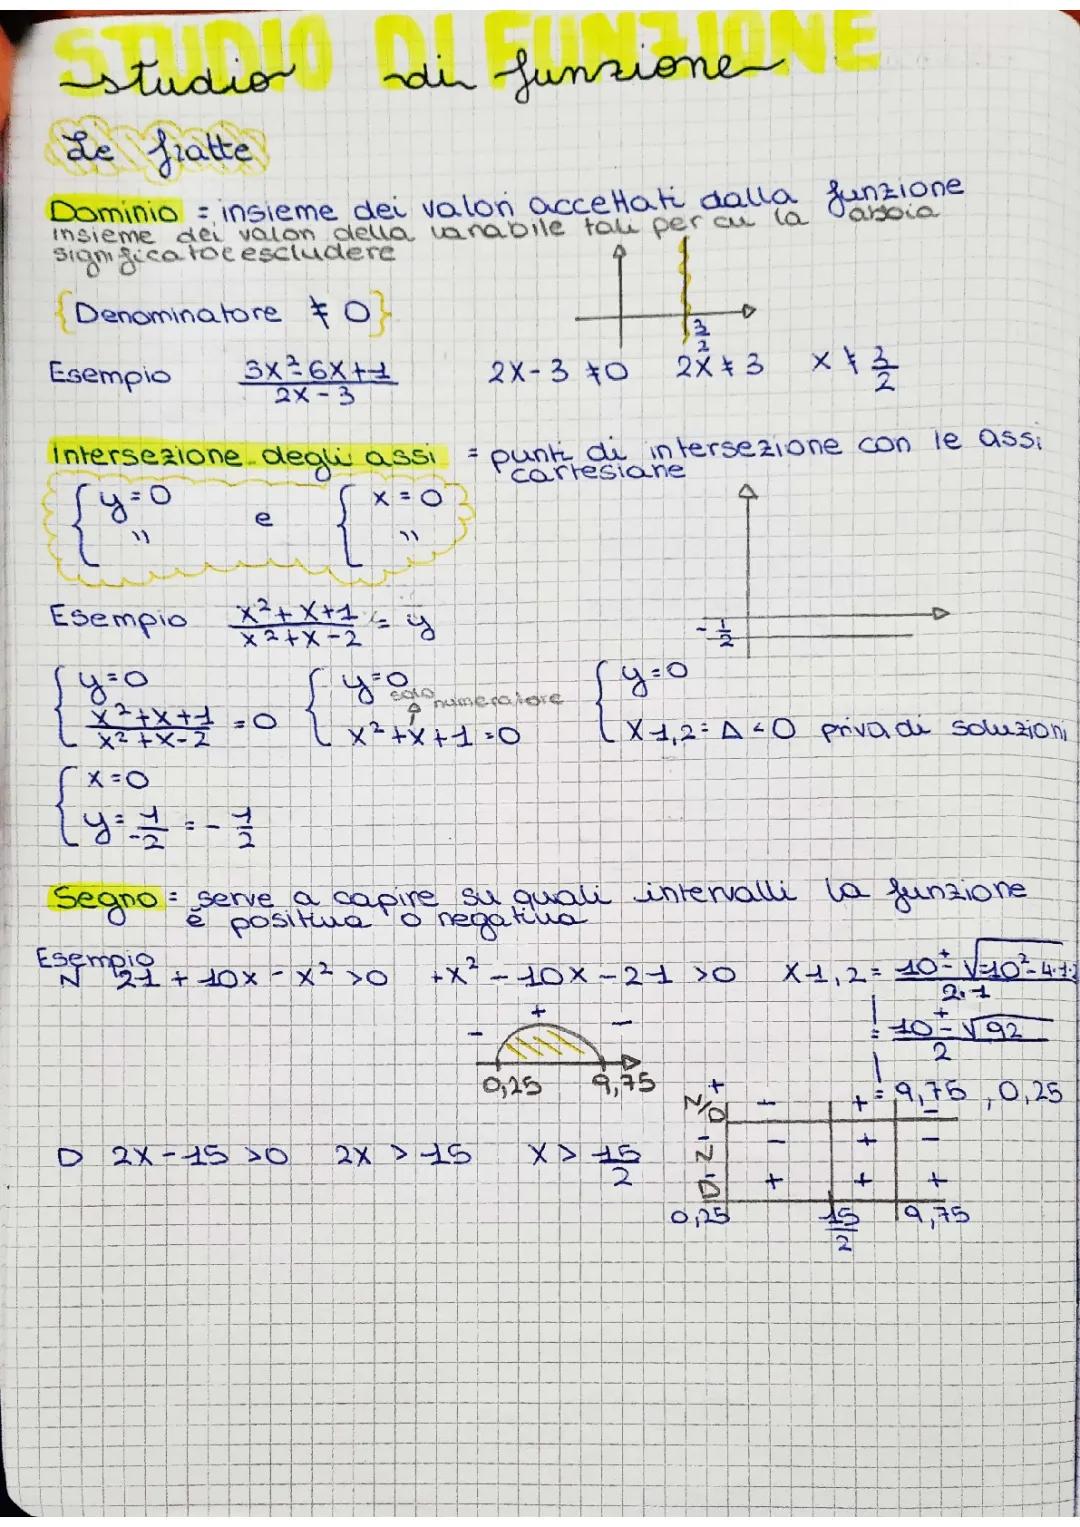 STUDIO DI FUNZIONE
studio di funzione
Le fratte
Dominio = insieme dei valori accettati dalla funzione
insieme dei valori della variabile tali per cui la abbia
significato e escludere
{Denominatore ≠ 0}
3/2
Esempio (3x²-6x+1)/(2x-3) 2x-3 ≠0 2x≠3 x≠3/2
Intersezione degli assi = punti di intersezione con le assi
cartesiane
{y=0 " e {x=0 "
Esempio (x²+x+1)/(x²+x-2) = y
-1/2
{y=0 (x²+x+1)/(x²+x-2) =0 {y=0 solo numeratore x²+x+1=0 {y=0 x1,2= Δ<0 priva di soluzioni
{x=0 y=1/-2 = -1/2
Segno = serve a capire su quali intervalli la funzione
è positiva o negativa
Esempio
N 21+10x-x²>0 +x²-10x-21>0 x1,2= (10±√-10²-4·1·2)/(2·1)
= (10±√92)/2
- + -
0,25 9,75
= 9,75 , 0,25
D 2x-15>0 2x>15 x>15/2
N/D + - + -
N - - + -
D - + + +
0,25 15/2 9,75